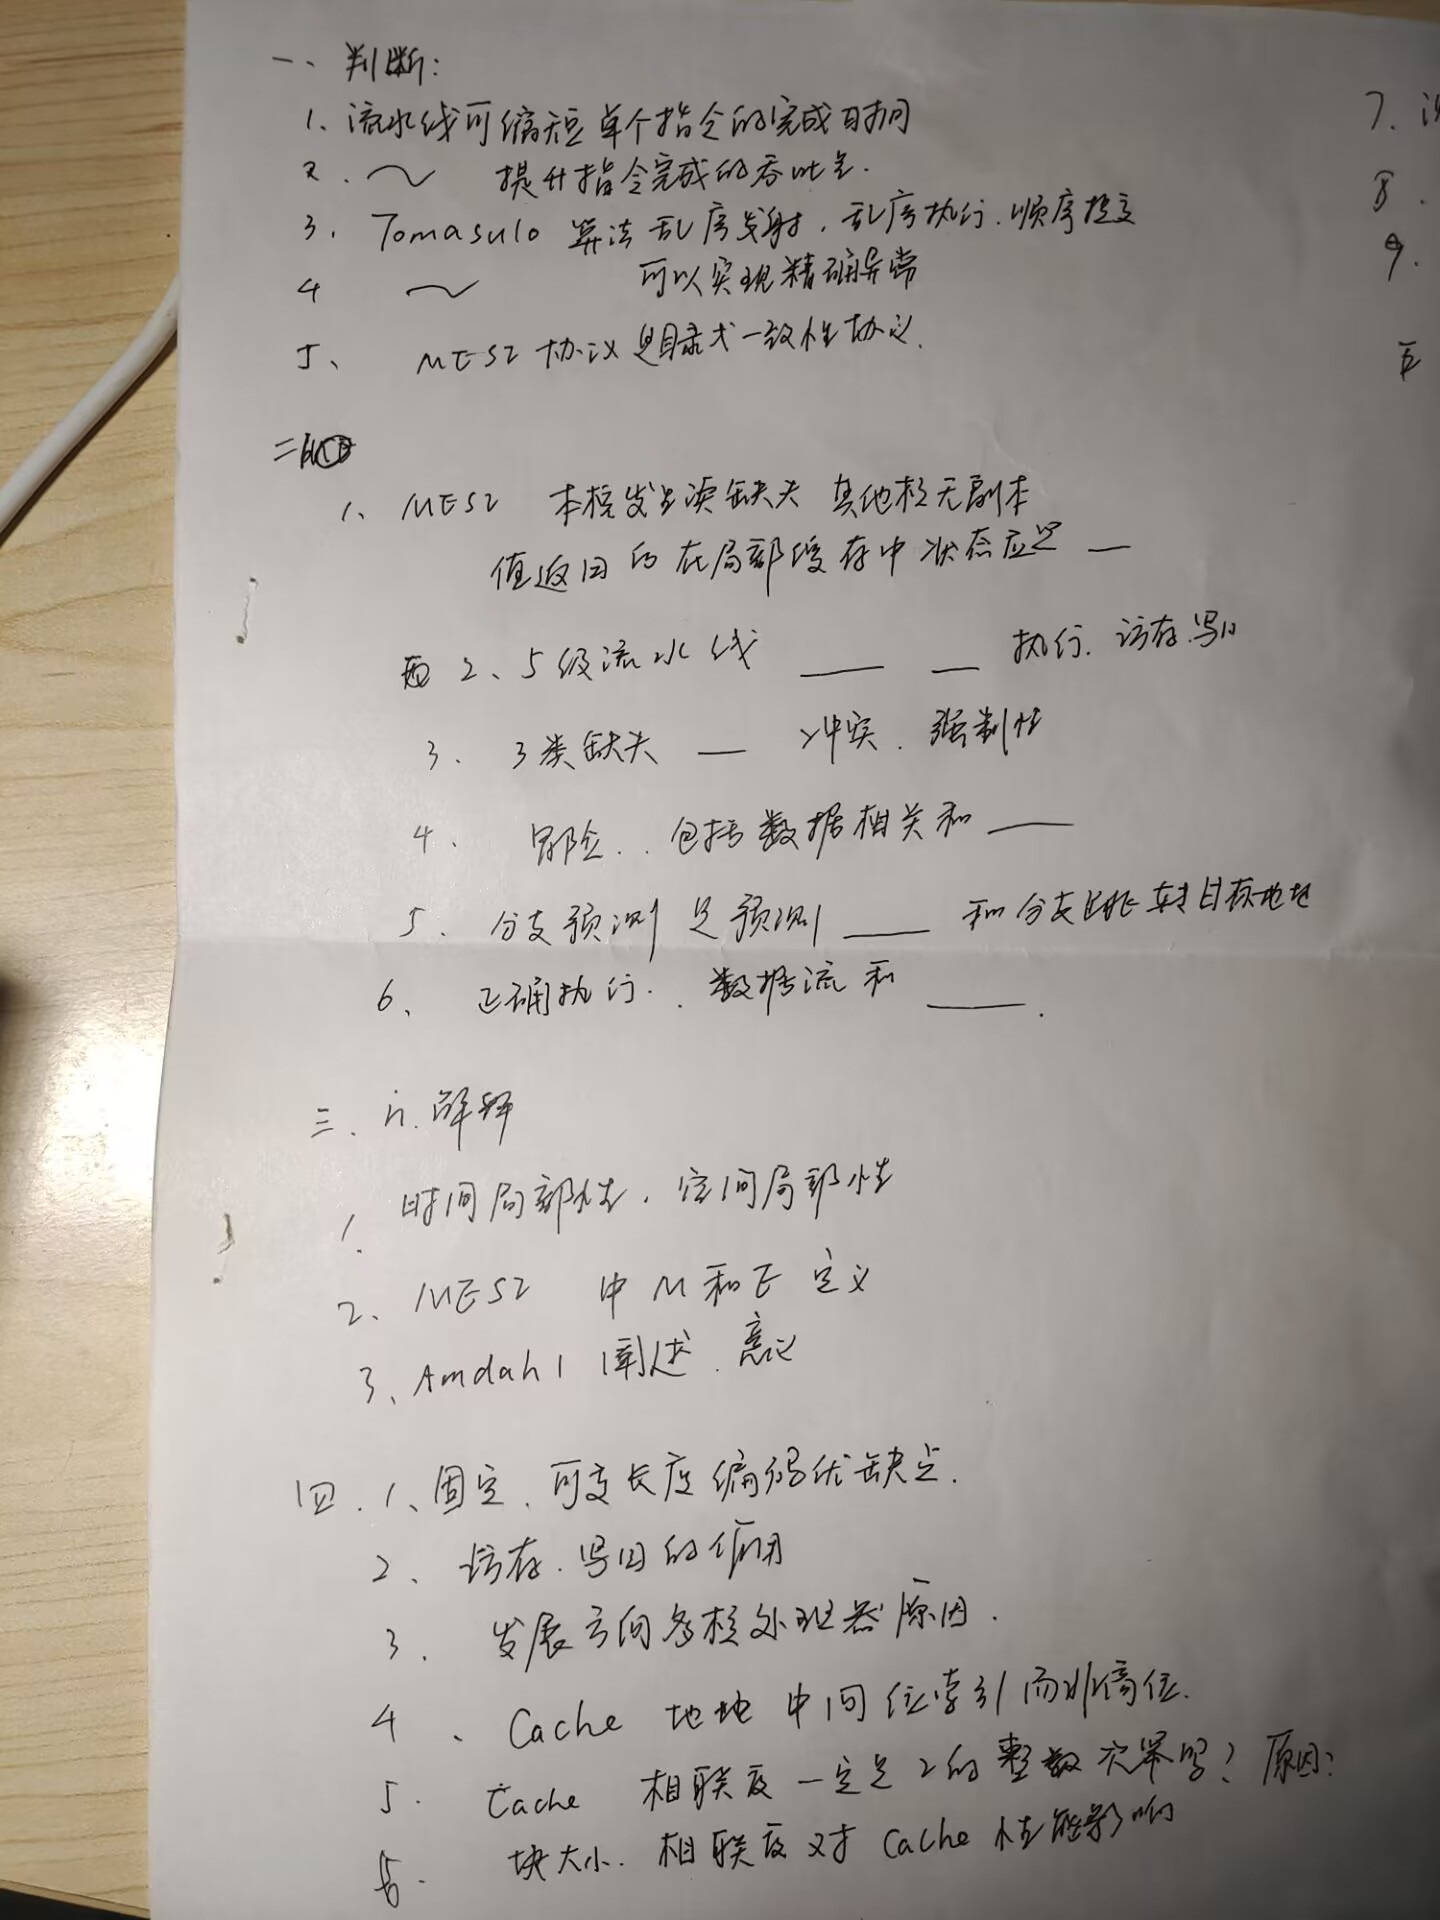 一、判断:
1、流水线可缩短单个指令的完成时间
2.~ 提升指令完成的吞吐量.
3. Tomasulo 算法乱序发射,乱序执行.顺序提交
4 ~ 可以实现精确异常
5、 MESI 协议是目录式一致性协议.
二
1、MESI 本核发生读缺失 其他核无副本
值返回后在局部缓存中状态应是 __
2、5级流水线 __ __ 执行.访存.写回
3. 3类缺失 __ 冲突.强制性
4. 冒险..包括数据相关和 __
5. 分支预测是预测 __ 和分支跳转目标地址
6、正确执行..数据流和 __.
三. 解释
1. 时间局部性.空间局部性
2、MESI 中M和E定义
3、Amdahl 阐述.意义
四.1、固定、可变长度编码优缺点.
2、访存.写回的作用
3. 发展方向多核处理器原因.
4、Cache 地址中间位索引而非高位.
5. Cache 相联度一定是2的整数次幂吗?原因?
6. 块大小.相联度对 Cache 性能影响
7.
8.
9.
五